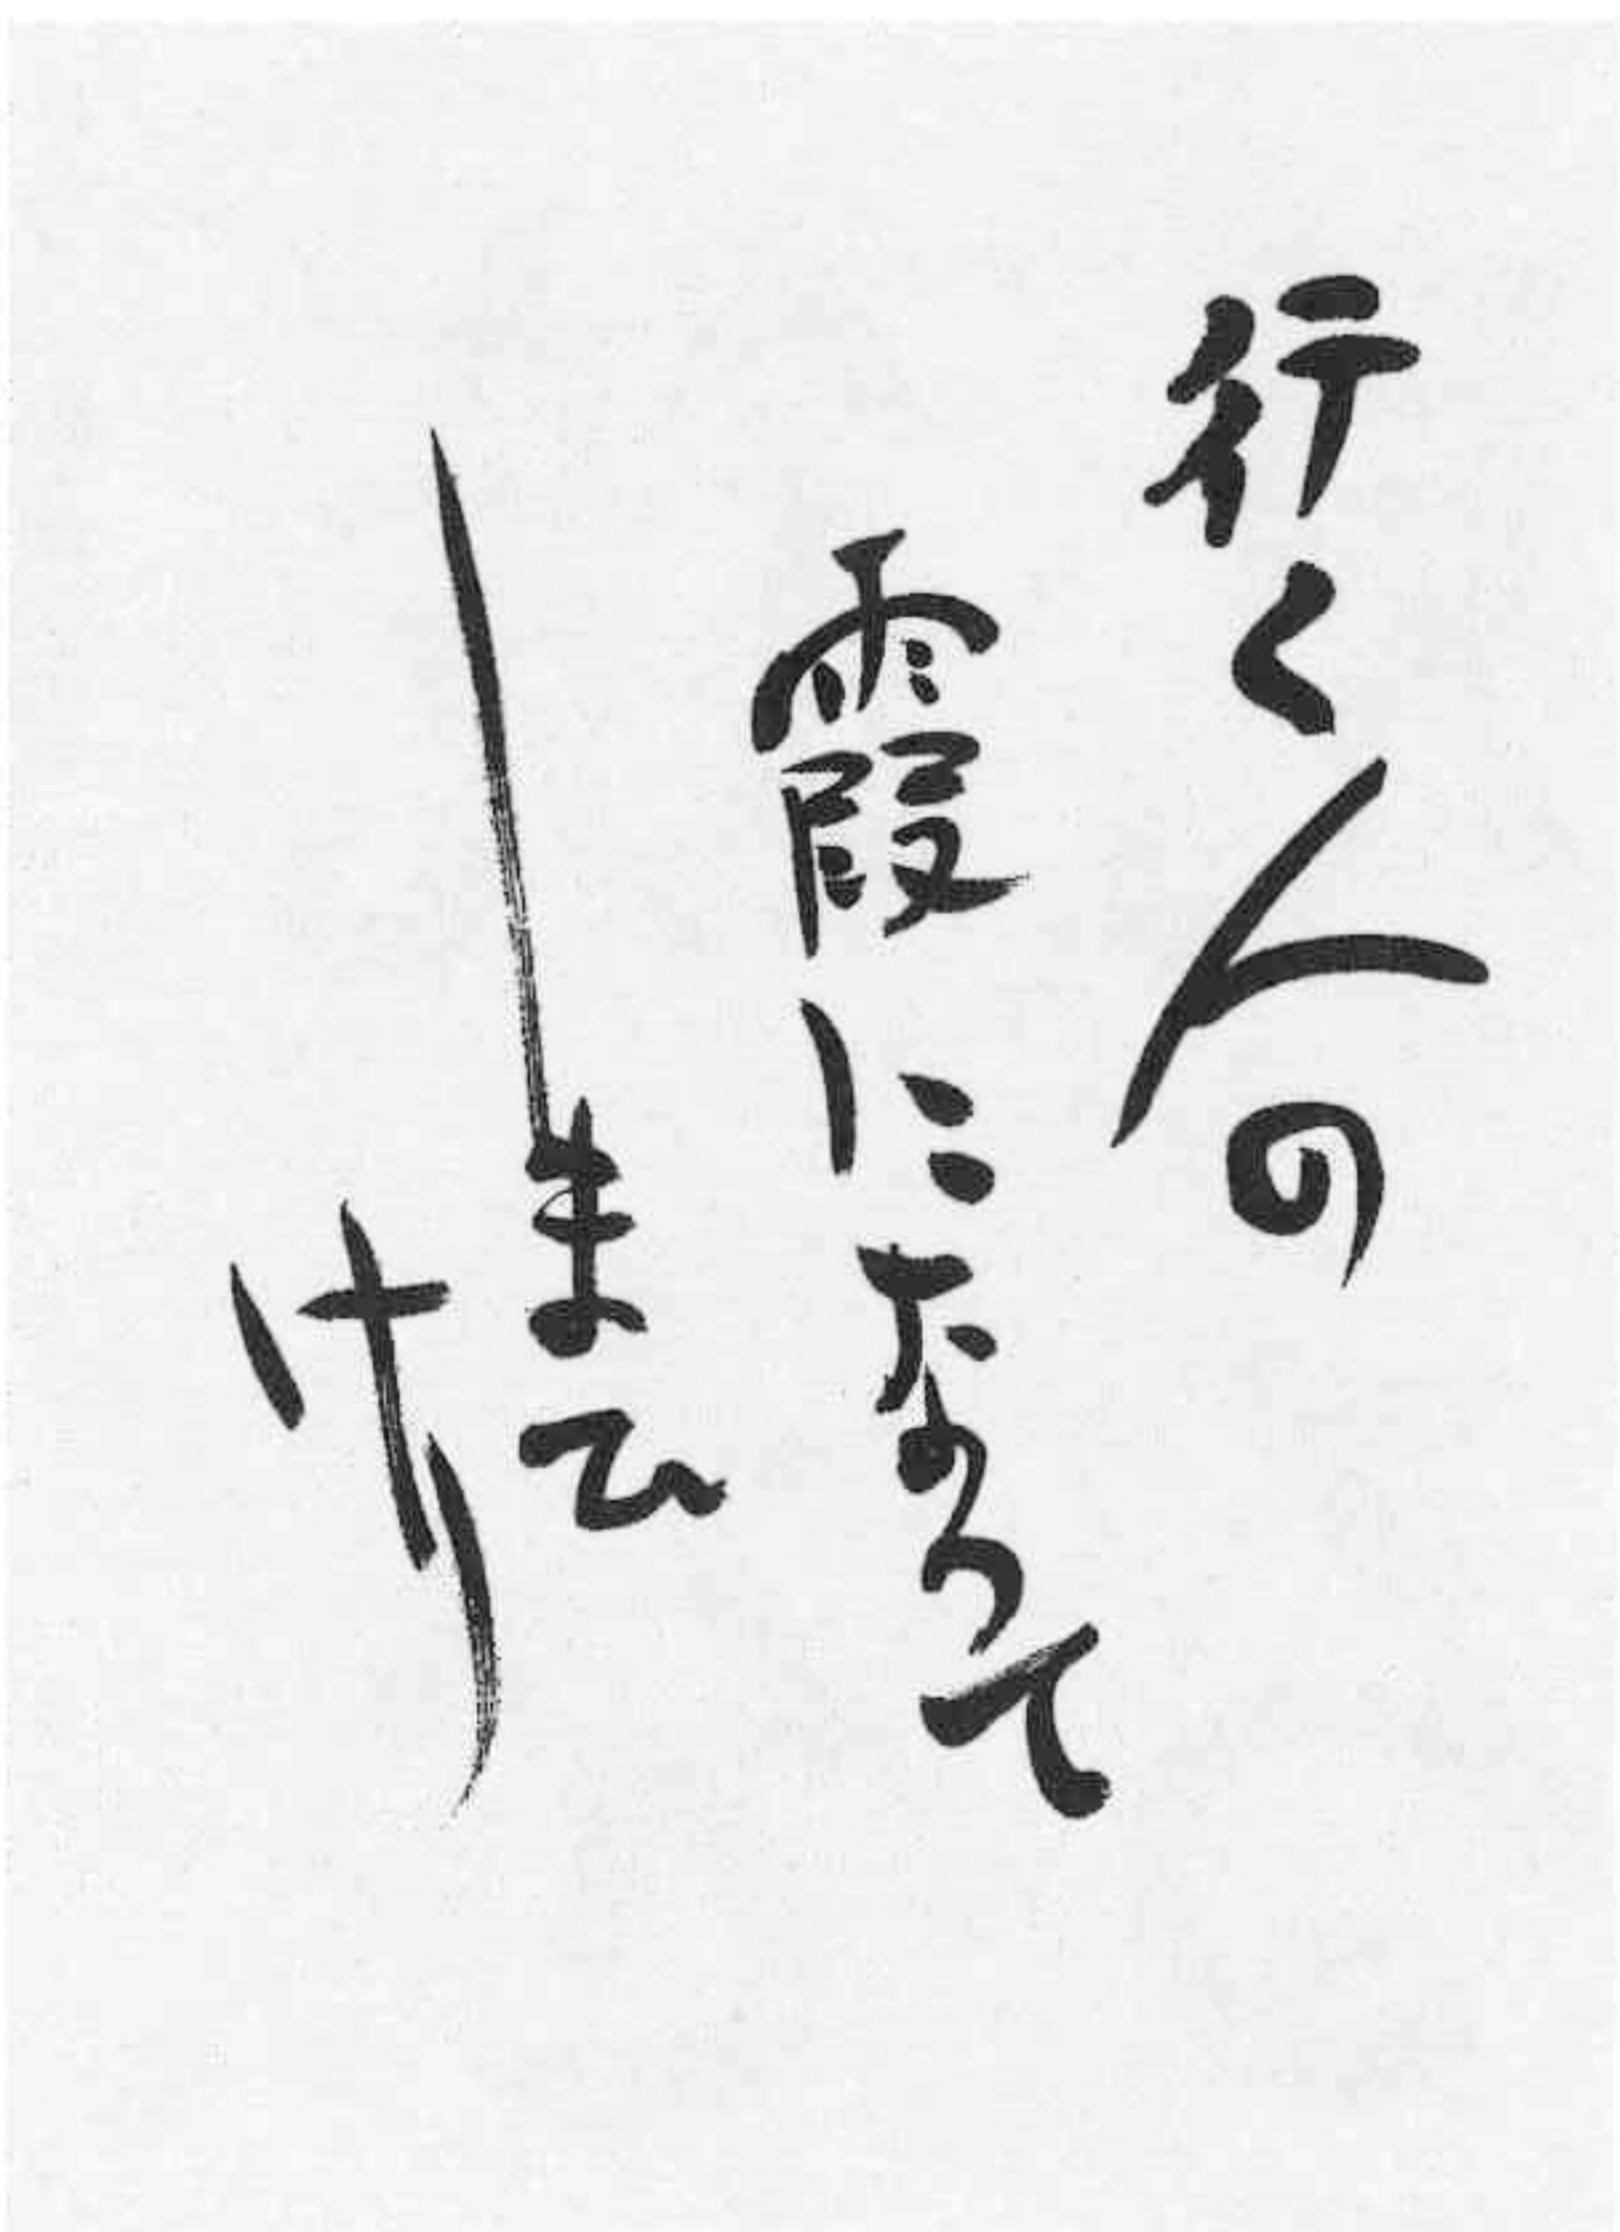 行く人の
霞になつて
しまひ
けり